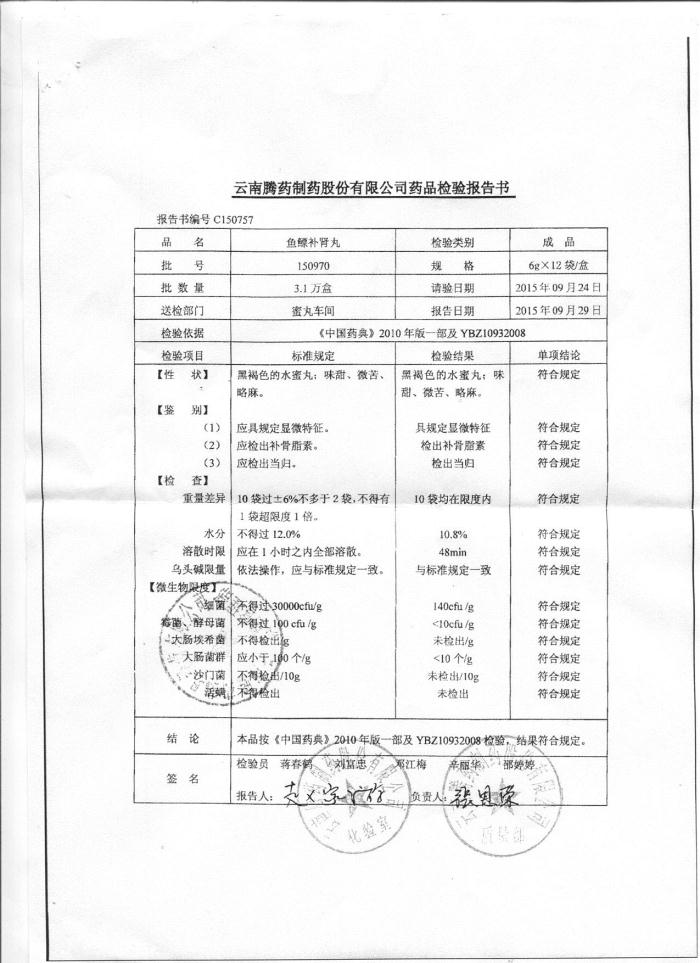 云南腾药制药股份有限公司药品检验报告书
报告书编号 C150757
品 名 鱼鳔补肾丸 检验类别 成 品
批 号 150970 规 格 6g×12 袋/盒
批 数 量 3.1 万盒 请验日期 2015 年 09 月 24 日
送检部门 蜜丸车间 报告日期 2015 年 09 月 29 日
检验依据 《中国药典》2010 年版一部及 YBZ10932008
检验项目 标准规定 检验结果 单项结论
【性 状】 黑褐色的水蜜丸；味甜、微苦、 黑褐色的水蜜丸；味 符合规定
略麻。 甜、微苦、略麻。
【鉴 别】
（1） 应具规定显微特征。 具规定显微特征 符合规定
（2） 应检出补骨脂素。 检出补骨脂素 符合规定
（3） 应检出当归。 检出当归 符合规定
【检 查】
重量差异 10 袋过±6%不多于 2 袋,不得有 10 袋均在限度内 符合规定
1 袋超限度 1 倍。
水分 不得过 12.0% 10.8% 符合规定
溶散时限 应在 1 小时之内全部溶散。 48min 符合规定
乌头碱限量 依法操作，应与标准规定一致。 与标准规定一致 符合规定
【微生物限度】
细菌 不得过 30000cfu/g 140cfu /g 符合规定
霉菌、酵母菌 不得过 100 cfu /g <10cfu /g 符合规定
大肠埃希菌 不得检出/g 未检出/g 符合规定
大肠菌群 应小于 100 个/g <10 个/g 符合规定
沙门菌 不得检出/10g 未检出/10g 符合规定
活螨 不得检出 未检出 符合规定
结 论 本品按《中国药典》2010 年版一部及 YBZ10932008 检验，结果符合规定。
签 名 检验员 蒋春鹤 刘富忠 邓江梅 辛丽华 邵婷婷
报告人： 负责人：
化验室